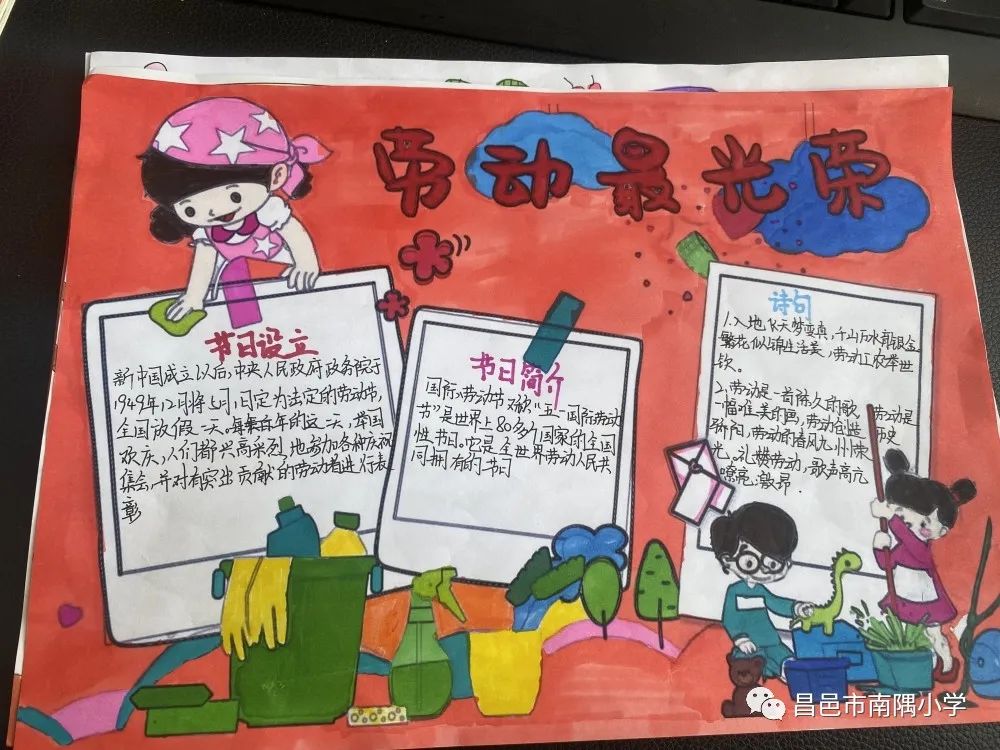 劳动最光荣
节日设立
新中国成立以后,中央人民政府政务院于
1949年12月将5月1日定为法定的劳动节,
全国放假一天。每年的这一天,举国
欢庆,人们都兴高采烈地参加各种庆祝
集会,并对有突出贡献的劳动者进行表
彰
节日简介
国际劳动节又称“五一国际劳动
节”是世界上80多个国家的全国
性节日。它是全世界劳动人民共
同拥有的节日
诗句
1.入地飞天梦变真,千山万水
繁花似锦生活美,劳动工农举世
钦。
2.劳动是一首陈久的歌,劳动是
一幅唯美的画,劳动创造历史
骄阳,劳动的春风九州荣
光。礼赞劳动,歌声高亢
嘹亮激昂.
昌邑市南隅小学